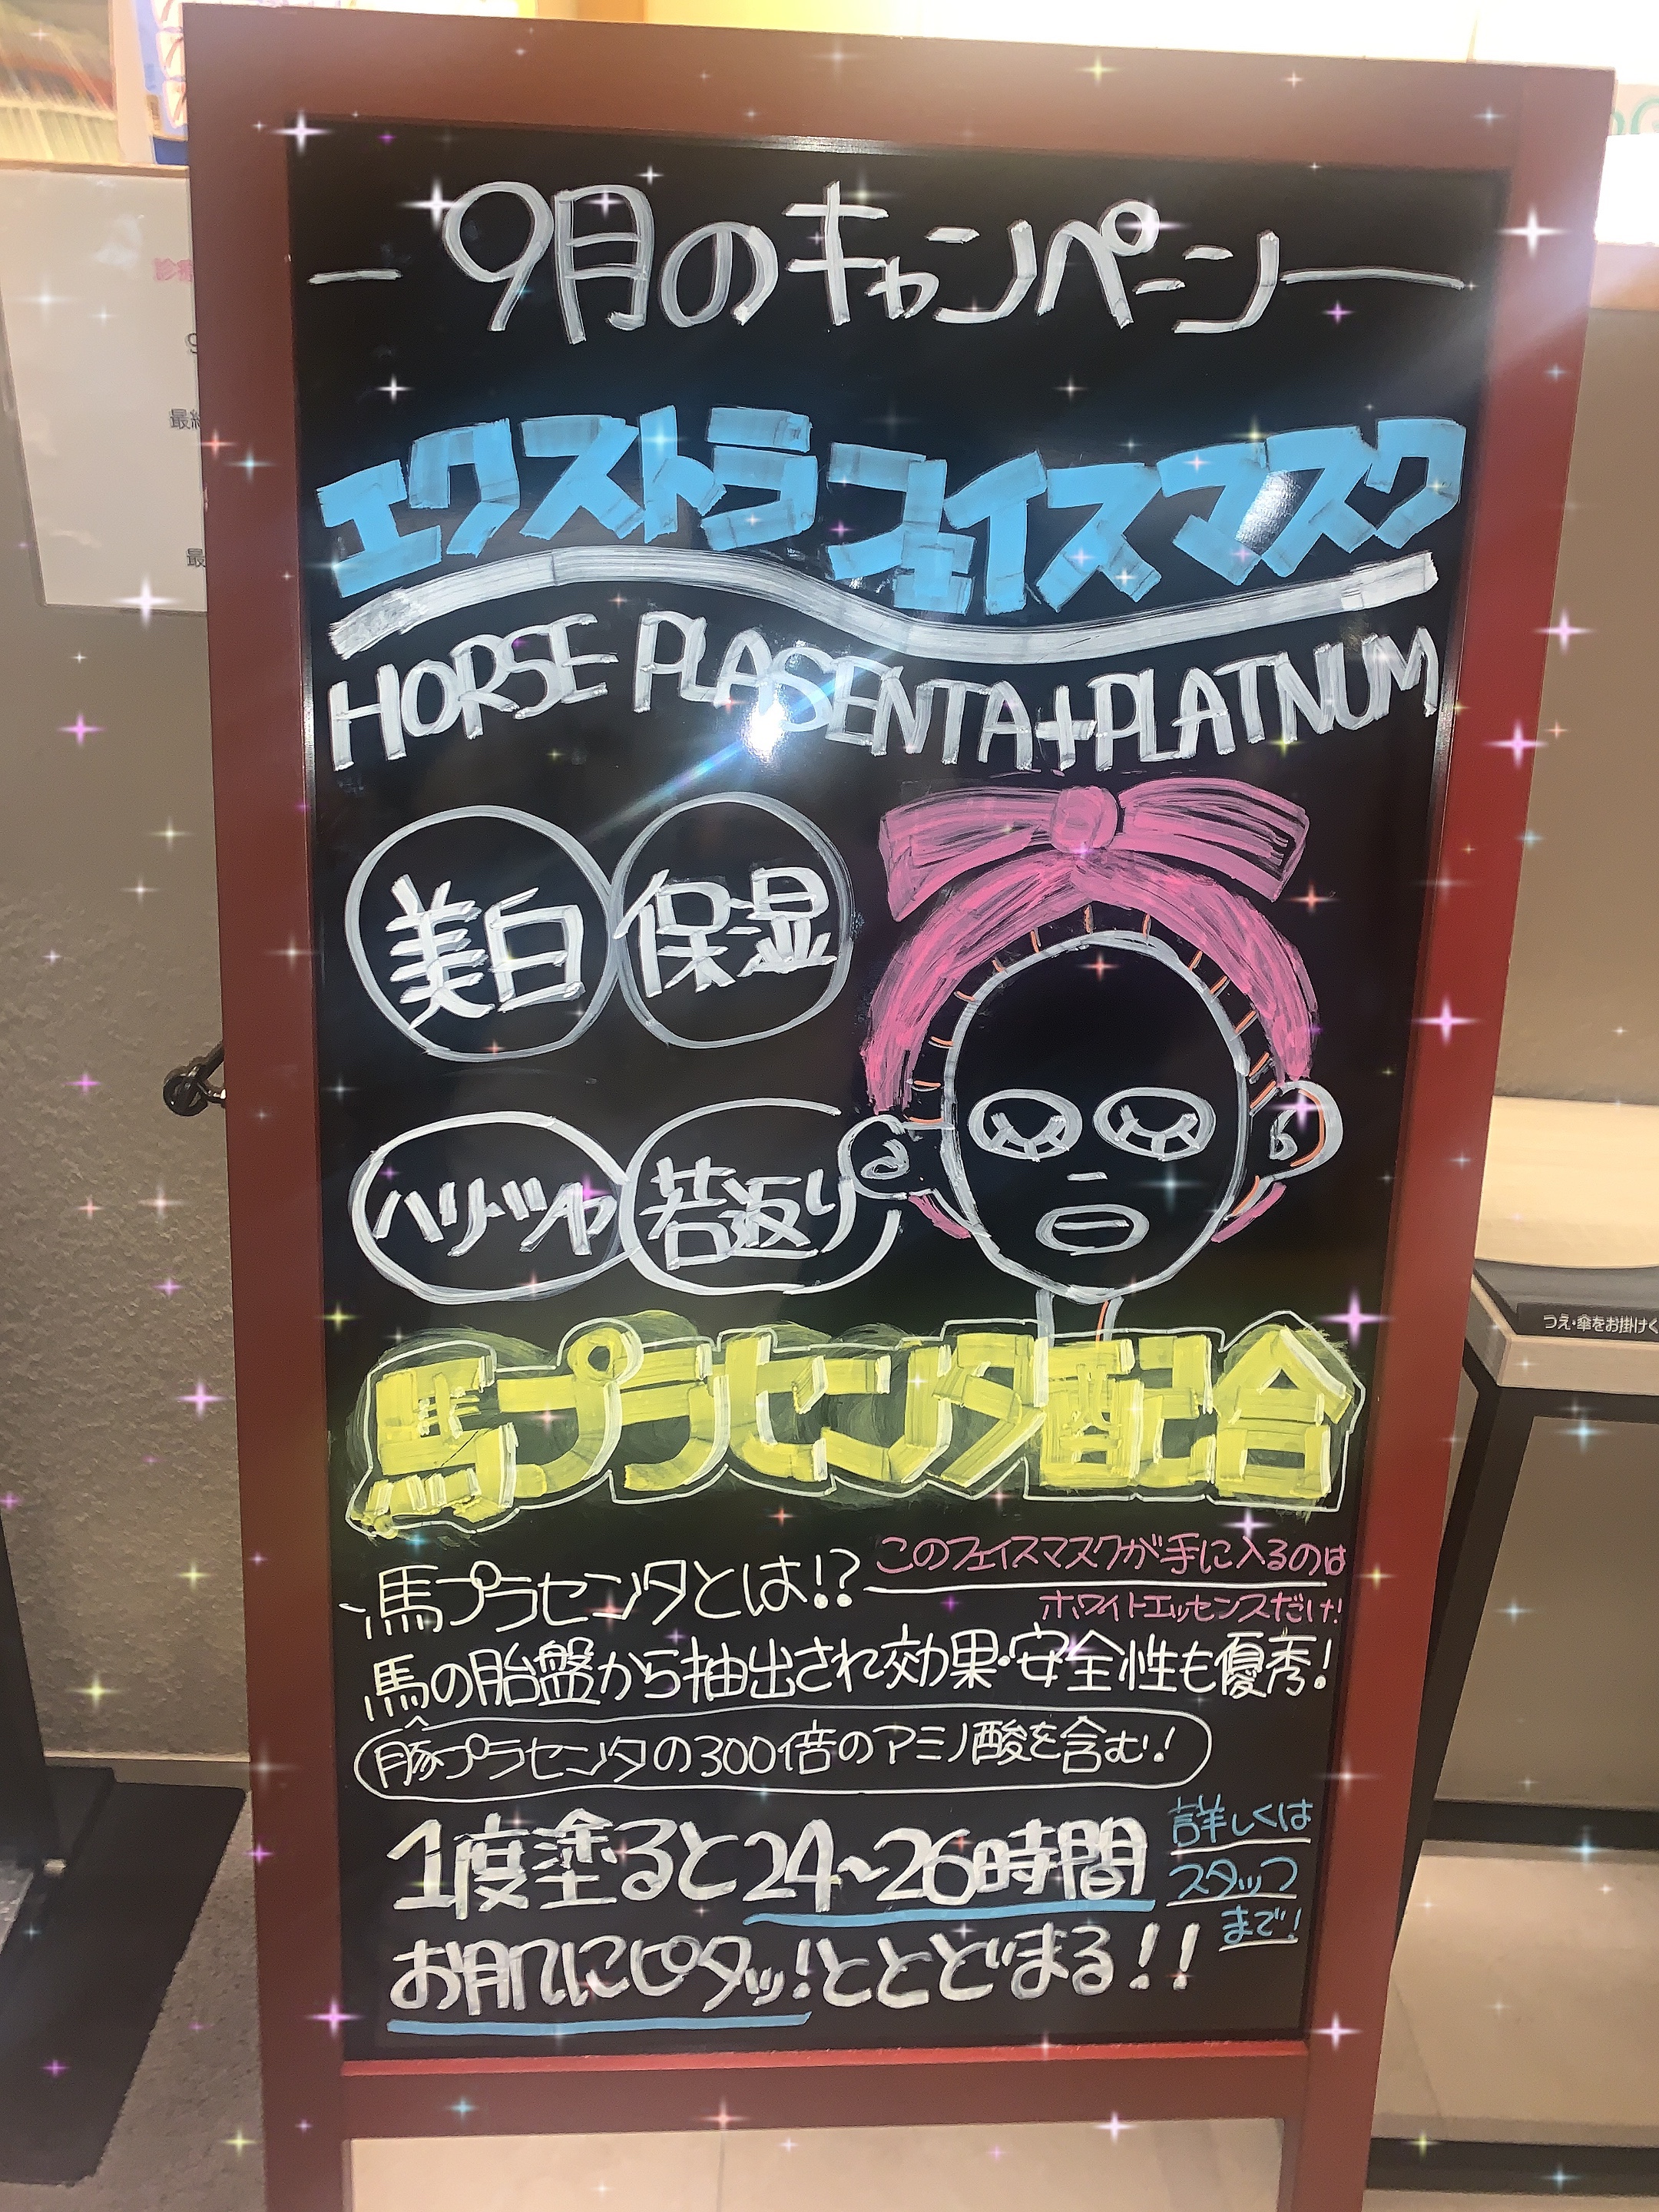 9月のキャンペーン
エクストラフェイスマスク
HORSE PLASENTA+PLATNUM
美白
保湿
ハリ・ツヤ
若返り
馬プラセンタ配合
馬プラセンタとは!?
このフェイスマスクが手に入るのは
ホワイトエッセンスだけ!
馬の胎盤から抽出され効果・安全性も優秀!
豚プラセンタの300倍のアミノ酸を含む!
1度塗ると24~26時間
お肌にピタッ!ととどまる!!
詳しくは
スタッフ
まで!
つえ・傘をお掛けく